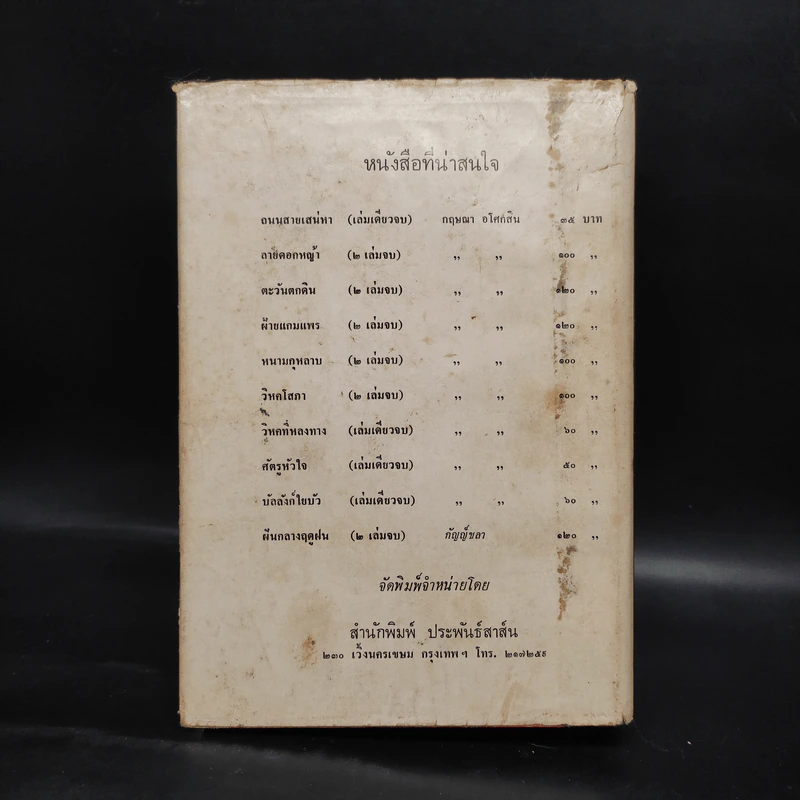 หนังสือที่น่าสนใจ
ถนนสายเสน่หา (เล่มเดียวจบ) กฤษณา อโศกสิน ๓๕ บาท
ลายดอกหญ้า (๒ เล่มจบ) ,, ,, ๑๐๐ ,,
ตะวันตกดิน (๒ เล่มจบ) ,, ,, ๑๒๐ ,,
ฝ้ายแกมแพร (๒ เล่มจบ) ,, ,, ๑๒๐ ,,
หนามกุหลาบ (๒ เล่มจบ) ,, ,, ๑๐๐ ,,
วิหคโสภา (๒ เล่มจบ) ,, ,, ๑๐๐ ,,
วิหคที่หลงทาง (เล่มเดียวจบ) ,, ,, ๖๐ ,,
ศัตรูหัวใจ (เล่มเดียวจบ) ,, ,, ๕๐ ,,
บัลลังก์ใยบัว (เล่มเดียวจบ) ,, ,, ๖๐ ,,
ผีนกลางฤดูฝน (๒ เล่มจบ) กัญญ์ชลา ๑๒๐ ,,
จัดพิมพ์จำหน่ายโดย
สำนักพิมพ์ ประพันธ์สาส์น
๒๓๐ เวิ้งนครเขษม กรุงเทพฯ โทร. ๒๑๗๒๕๙